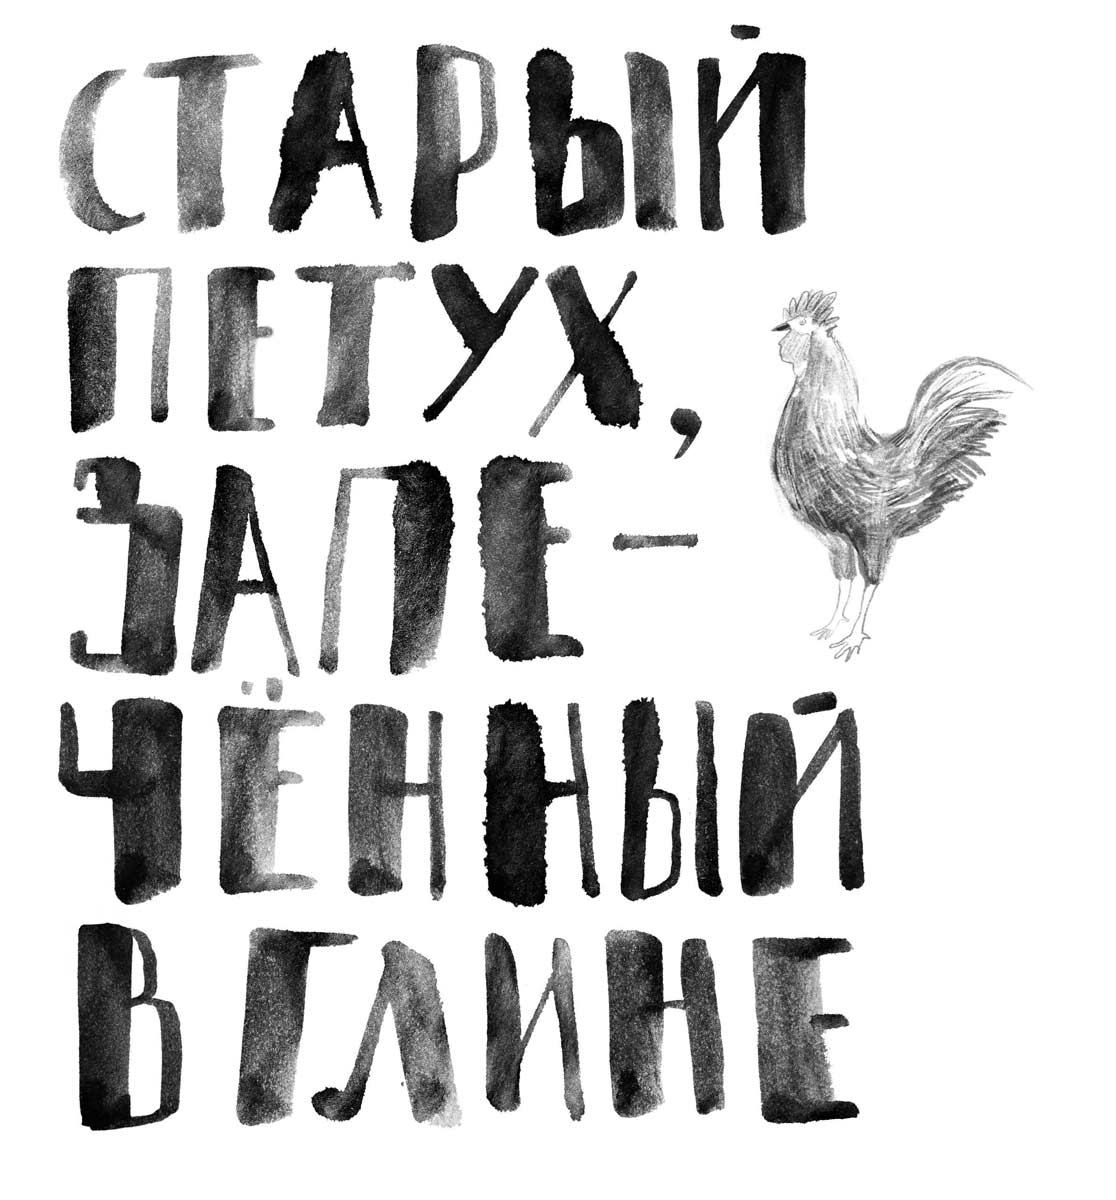 СТАРЫЙ
ПЕТУХ,
ЗАПЕ–
ЧЁННЫЙ
В ГЛИНЕ